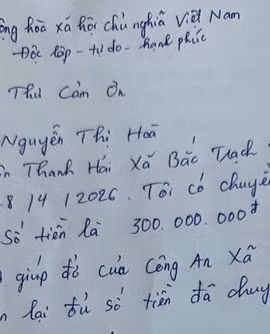 ộng hòa xã hội chủ nghĩa Việt Nam
Độc lập - tự do - hạnh phúc
Thư Cảm Ơn
Nguyễn Thị Hoã
n Thanh Hải Xã Bắc Trạch
8/4/2026. Tôi có chuyể
Số tiền là 300.000.000đ
giúp đỡ của Công An Xã
n lại đủ số tiền đã chuy